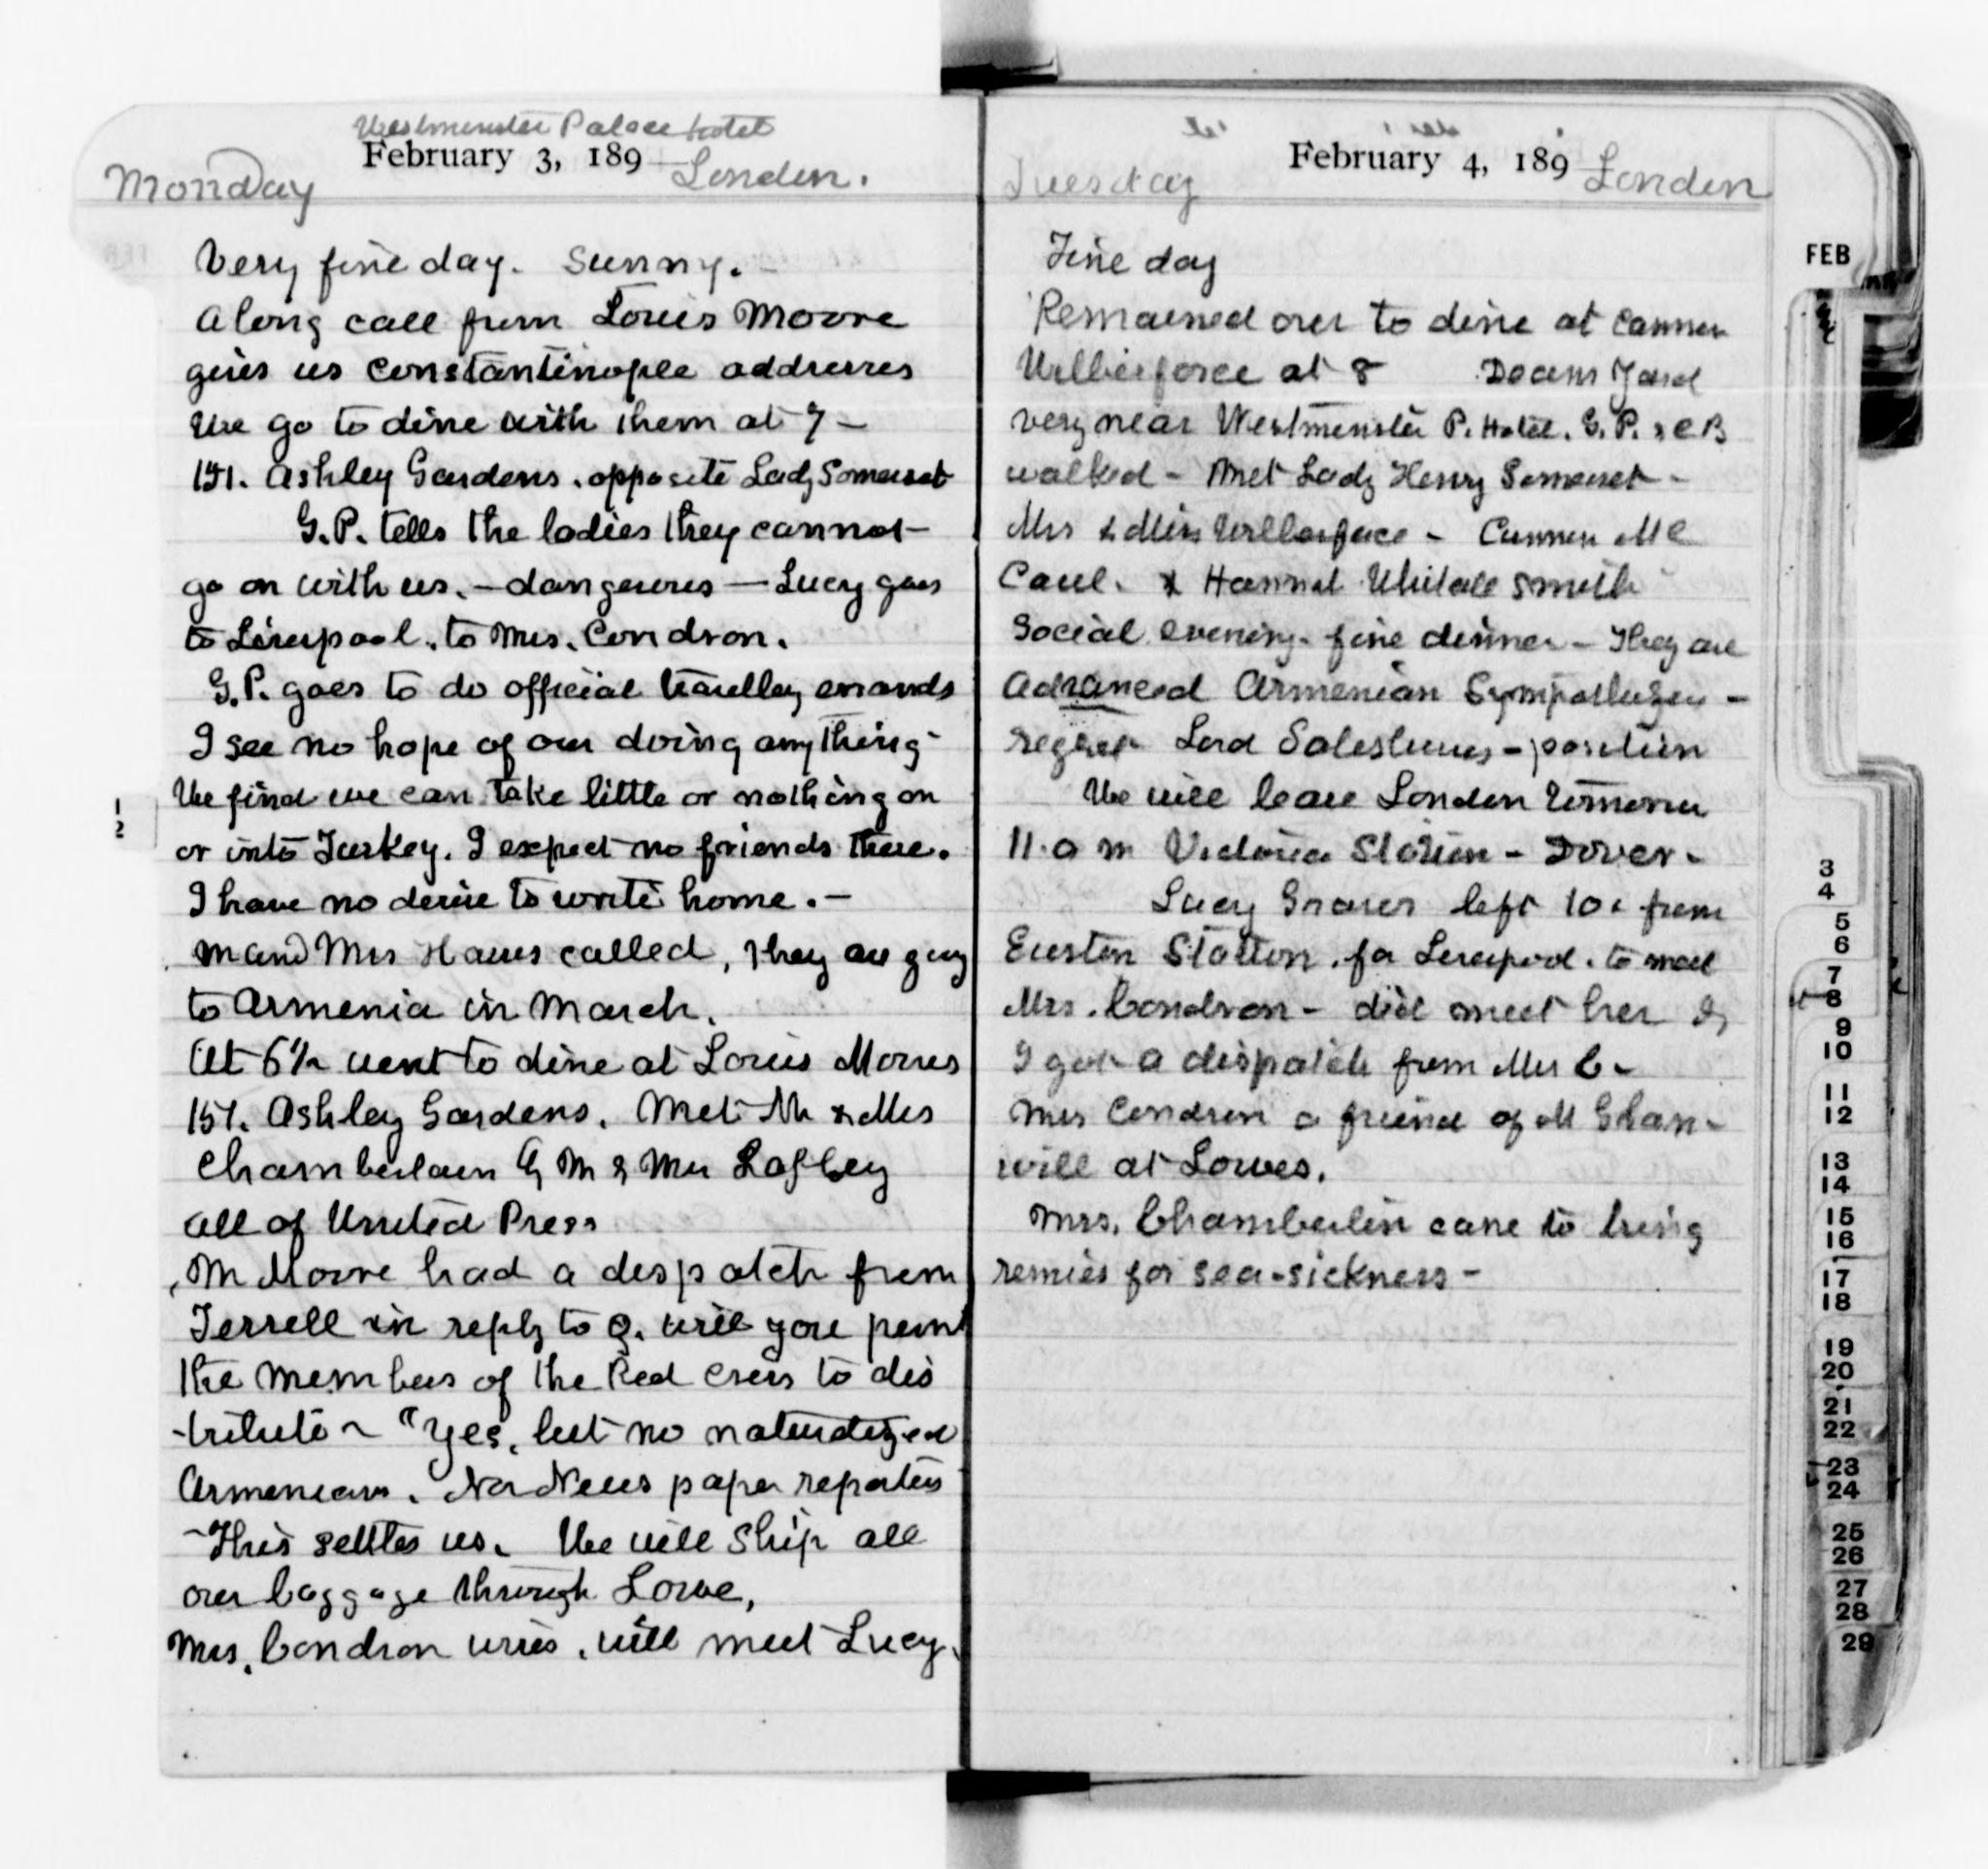 Westminster Palace Hotel
February 3, 189
Monday London.
Very fine day. Sunny.
A long call from Louis Moore
gives us Constantinople addresses
We go to dine with them at 7 –
151. Ashley Gardens. opposite Lady Somerset
G.P. tells the ladies they cannot –
go on with us. – dangerous – Lucy goes
to Liverpool. to Mrs. Condron.
G.P. goes to do official travelling errands
I see no hope of our doing anything –
We find we can take little or nothing on
or into Turkey. I expect no friends there.
I have no desire to write home. –
M and Mrs called, they are going
to Armenia in March.
At 6½ went to dine at Louis Moores
151. Ashley Gardens. Met Mr & Mrs
Chamberlain & Mr & Mrs
all of United Press
Mr Moore had a despatch from
Terrell in reply to Q. will you permit
the members of the Red Cross to dis
-tribute ~ "Yes, but no naturalized
Armenians. Nor News paper reporters
– This settles us. We will ship all
our baggage through Lowe,
Mrs. Condron wires. will meet Lucy.
1
2
February 4, 189
Tuesday London
Fine day
Remained over to dine at Cannon
Wilberforce at 8 Deans Yard
very near Westminster P. Hotel. G.P. & CB
walked – Met Lady Henry Somerset –
Mrs & Miss Wilberforce – Cannon Mc
& Hannah Whitall Smith
Social evening. fine dinner – They are
advanced Armenian Sympathizers –
regret Lord Salesburys – position
We will leave London tomorrow
11. a m Victoria Station – Dover –
Lucy Graves left 10. from
Euston Station. for Liverpool. to meet
Mrs. Condron – did meet her &
I got a dispatch from Mrs C –
Mrs Condron a friend of M
will at Lowes.
Mrs. Chamberlin cane to bring
remies for sea-sickness –
FEB
3
4
5
6
7
8
9
10
11
12
13
14
15
16
17
18
19
20
21
22
23
24
25
26
27
28
29